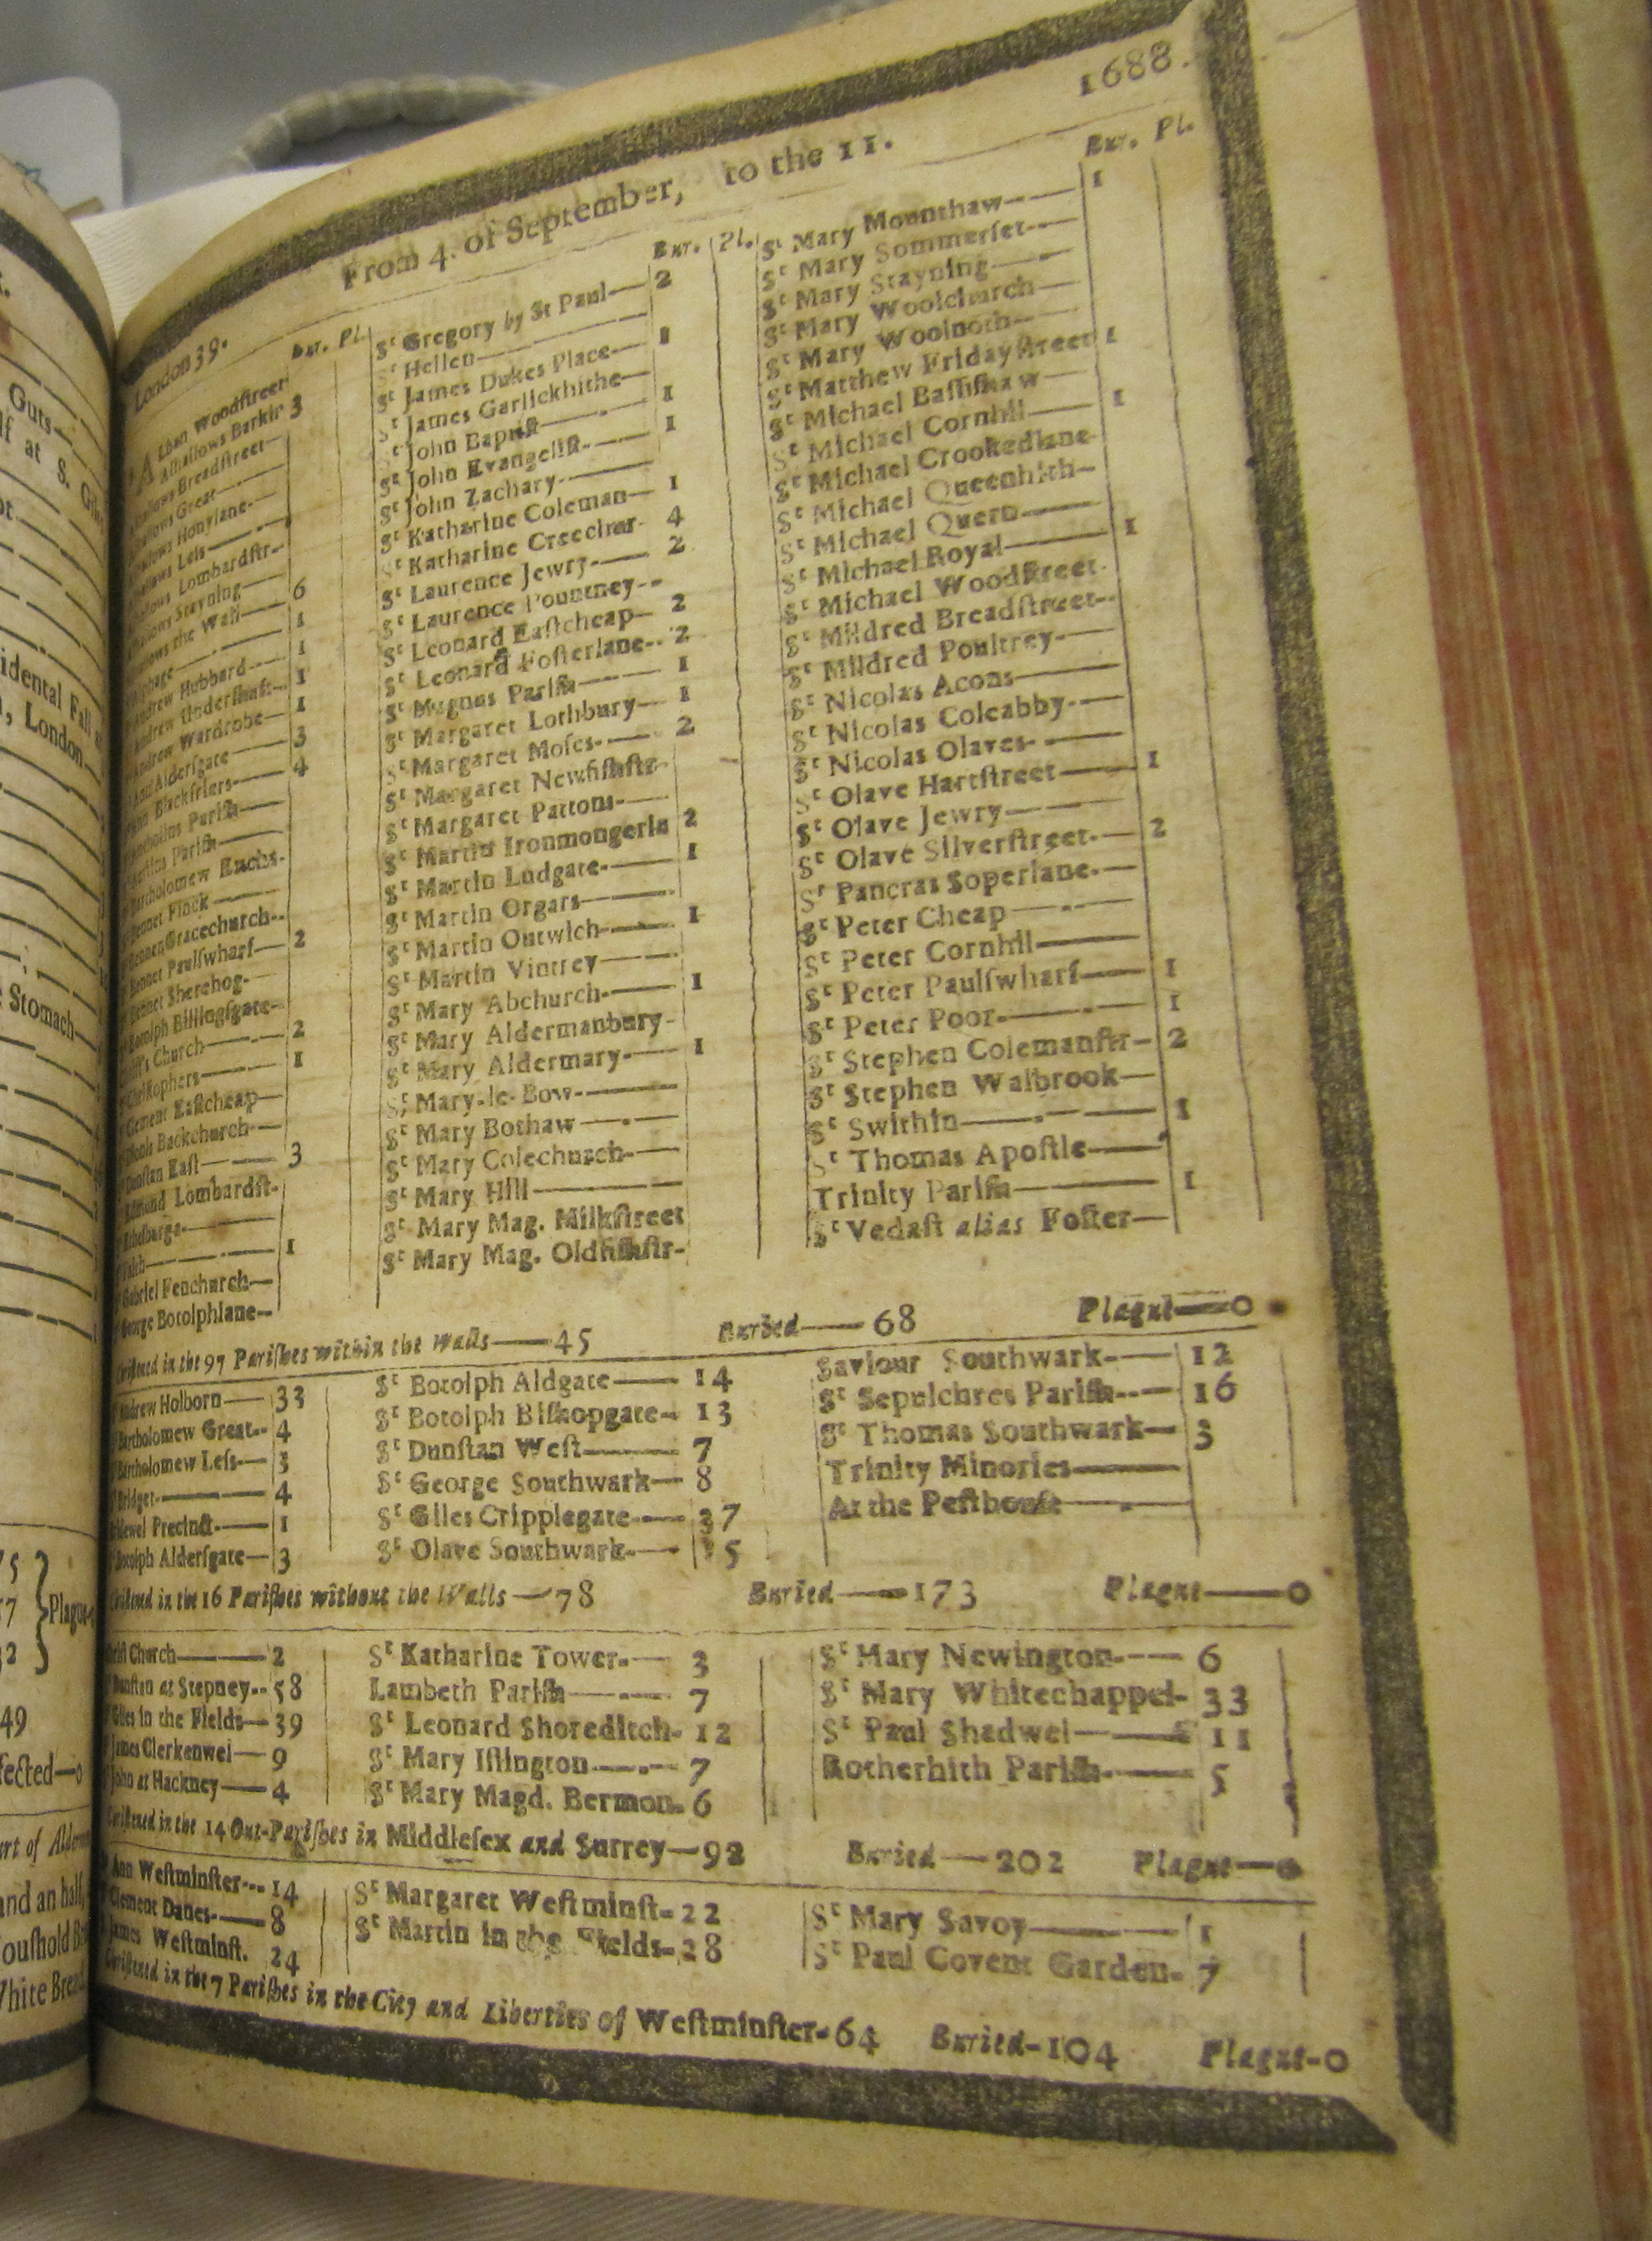 Guts
at S.
idental Fall
, London
Stomach
Plague
49
fected—0
and an half,
1688.
From 4. of September, to the 11.
London 39.
Bur. Pl.
Alban Woodstreet
Alhallows Barkin 3
hallows Breadstreet
hallows Great
hallows Honylane
hallows Less
hallows Lombardstr.
hallows Stayning
hallows the Wall—6
lphage—1
Andrew Hubbard—1
Andrew Undershaft—1
Andrew Wardrobe—1
Ann Aldersgate—3
Ann Blackfriers—4
Antholins Parish
Austins Parish
Bartholomew Exchs.
Bennet Finck
Bennet Gracechurch
Bennet Paulſwharf—2
Bennet Sherehog
Botolph Billingſgate
Christ's Church—2
Christophers—1
Clement Eaſtcheap
Dionis Backchurch
Dunſtan Eaſt—3
Edmund Lombardſt.
Ethelburga
Faith—1
Gabriel Fenchurch
George Botolphlane
Bur. Pl.
Sᵗ Gregory by St Paul—2
Sᵗ Hellen
Sᵗ James Dukes Place—1
Sᵗ James Garlickhithe
Sᵗ John Baptiſt—1
Sᵗ John Evangeliſt—1
Sᵗ John Zachary
Sᵗ Katharine Coleman—1
Sᵗ Katharine Creechur 4
Sᵗ Laurence Jewry—2
Sᵗ Laurence Pountney
Sᵗ Leonard Eaſtcheap—2
Sᵗ Leonard Foſterlane—2
Sᵗ Magnus Pariſh—1
Sᵗ Margaret Lothbury—1
Sᵗ Margaret Moſes—2
Sᵗ Margaret Newfiſhſtr
Sᵗ Margaret Pattons
Sᵗ Martin Ironmongerla 2
Sᵗ Martin Ludgate—1
Sᵗ Martin Orgars
Sᵗ Martin Outwich—1
Sᵗ Martin Vintrey
Sᵗ Mary Abchurch—1
Sᵗ Mary Aldermanbury
Sᵗ Mary Aldermary—1
Sᵗ Mary-le-Bow
Sᵗ Mary Bothaw
Sᵗ Mary Colechurch
Sᵗ Mary Hill
Sᵗ Mary Mag. Milkſtreet
Sᵗ Mary Mag. Oldfiſhſtr
Bur. Pl.
Sᵗ Mary Mounthaw—1
Sᵗ Mary Sommerſet
Sᵗ Mary Stayning
Sᵗ Mary Woolchurch
Sᵗ Mary Woolnoth
Sᵗ Matthew Fridayſtreet 1
Sᵗ Michael Baſſiſhaw
Sᵗ Michael Cornhil—1
Sᵗ Michael Crookedlane
Sᵗ Michael Queenhith
Sᵗ Michael Quern
Sᵗ Michael Royal—1
Sᵗ Michael Woodſtreet
Sᵗ Mildred Breadſtreet
Sᵗ Mildred Poultrey
Sᵗ Nicolas Acons
Sᵗ Nicolas Coleabby
Sᵗ Nicolas Olaves
Sᵗ Olave Hartſtreet—1
Sᵗ Olave Jewry
Sᵗ Olave Silverſtreet—2
Sᵗ Pancras Soperlane
Sᵗ Peter Cheap
Sᵗ Peter Cornhil
Sᵗ Peter Paulſwharf—1
Sᵗ Peter Poor—1
Sᵗ Stephen Colemanſtr—2
Sᵗ Stephen Walbrook
Sᵗ Swithin—1
Sᵗ Thomas Apoſtle
Trinity Pariſh—1
Sᵗ Vedaſt alias Foſter
Chriſtned in the 97 Pariſhes within the Walls—45 Buried—68 Plague—0
Andrew Holborn—33
Bartholomew Great—4
Bartholomew Leſs—3
Bridget—4
Bridewel Precinct—1
Botolph Alderſgate—3
Sᵗ Botolph Aldgate—14
Sᵗ Botolph Biſhopgate—13
Sᵗ Dunſtan Weſt—7
Sᵗ George Southwark—8
Sᵗ Giles Cripplegate—37
Sᵗ Olave Southwark—15
Saviour Southwark—12
Sᵗ Sepulchres Pariſh—16
Sᵗ Thomas Southwark—3
Trinity Minories
At the Peſthouſe
Chriſtned in the 16 Pariſhes without the Walls—78 Buried—173 Plague—0
Chriſt Church—2
Dunſtan at Stepney—58
Giles in the Fields—39
James Clerkenwel—9
John at Hackney—4
Sᵗ Katharine Tower—3
Lambeth Pariſh—7
Sᵗ Leonard Shoreditch—12
Sᵗ Mary Iſlington—7
Sᵗ Mary Magd. Bermon—6
Sᵗ Mary Newington—6
Sᵗ Mary Whitechappel—33
Sᵗ Paul Shadwel—11
Rotherhith Pariſh—5
Chriſtned in the 14 Out-Pariſhes in Middleſex and Surrey—92 Buried—202 Plague—0
Ann Weſtminſter—14
Clement Danes—8
James Weſtminſt. 24
Sᵗ Margaret Weſtminſt—22
Sᵗ Martin in the Fields—28
Sᵗ Mary Savoy—1
Sᵗ Paul Covent Garden—7
Chriſtned in the 7 Pariſhes in the City and Liberties of Weſtminſter—64 Buried—104 Plague—0